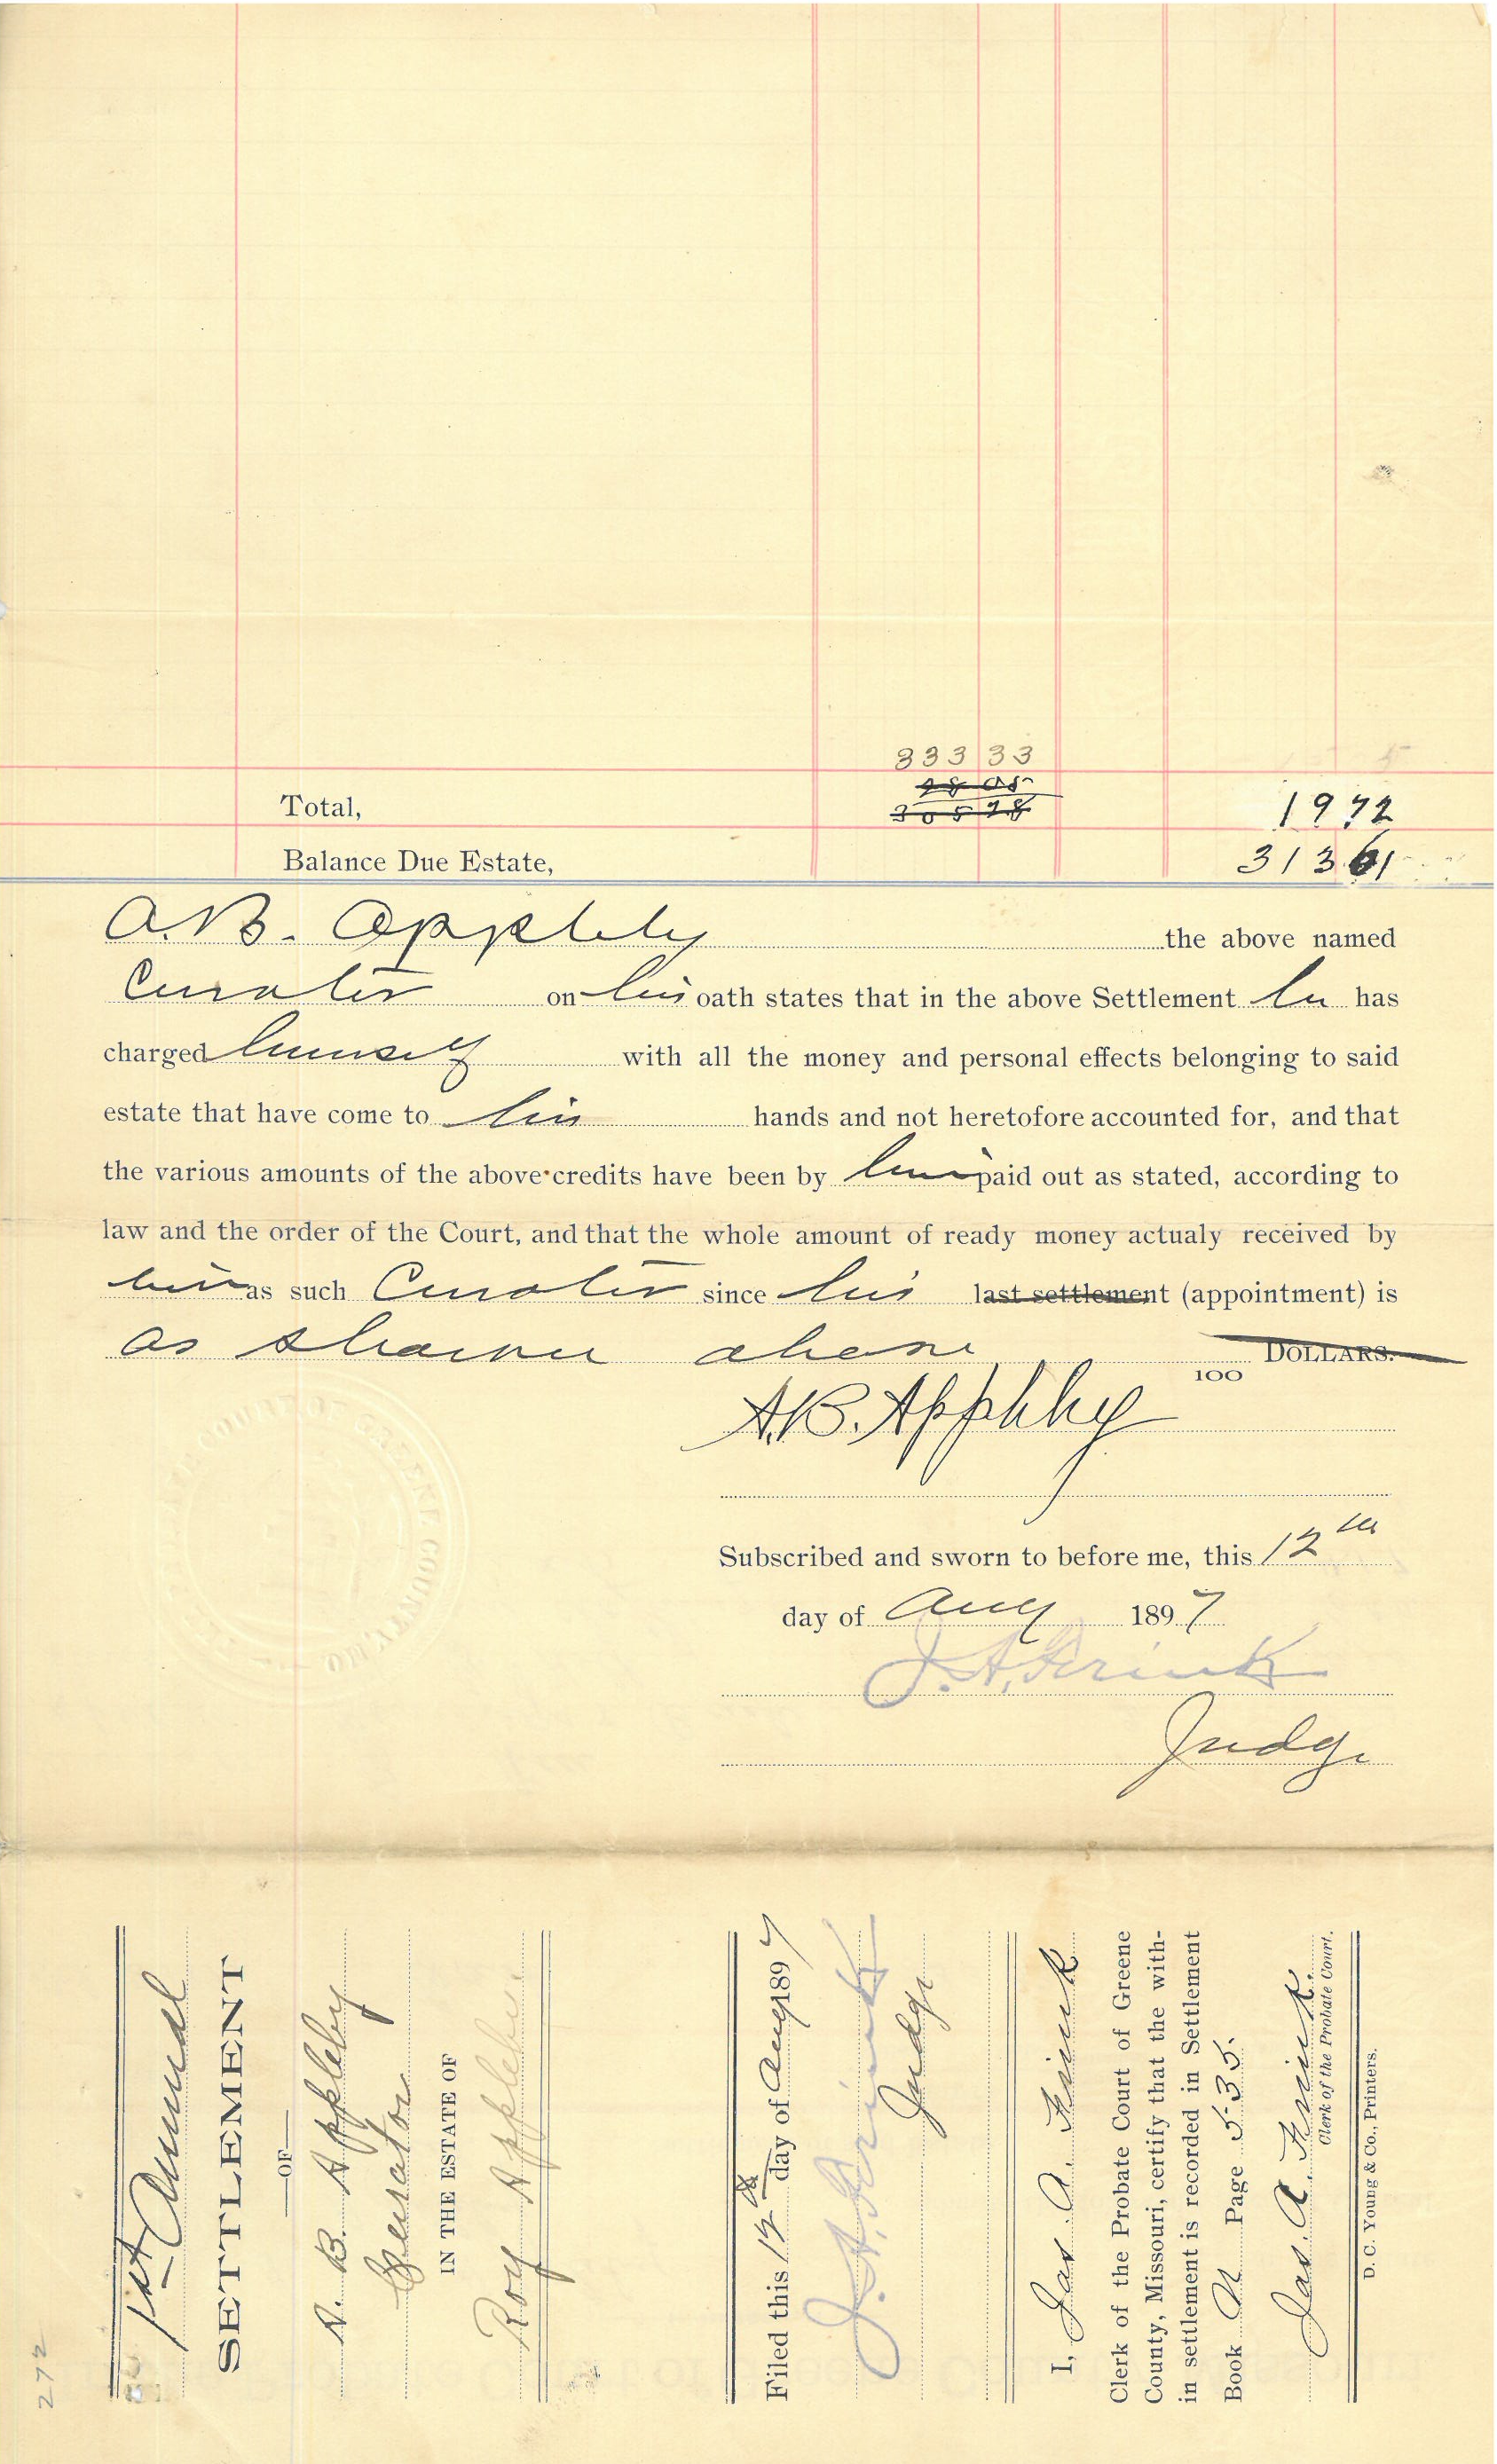 333 33
Total, 19 72
Balance Due Estate, 313 61
A. B. Appleby the above named
Curator on his oath states that in the above Settlement he has
charged himself with all the money and personal effects belonging to said
estate that have come to his hands and not heretofore accounted for, and that
the various amounts of the above credits have been by him paid out as stated, according to
law and the order of the Court, and that the whole amount of ready money actualy received by
him as such Curator since his last settlement (appointment) is
as shown above DOLLARS.
100
A. B. Appleby
Subscribed and sworn to before me, this 12th
day of Aug 1897
J. A. Frink
Judge
COURT OF GREENE COUNTY, MO
1st Annual
SETTLEMENT
OF
A. B. Appleby
Curator
IN THE ESTATE OF
Roy Appleby
Filed this 12th day of Aug 1897
J. A. Frink
Judge
I, Jas. A. Frink
Clerk of the Probate Court of Greene
County, Missouri, certify that the with-
in settlement is recorded in Settlement
Book N Page 535.
Jas. A. Frink.
Clerk of the Probate Court.
D. C. Young & Co., Printers.
272